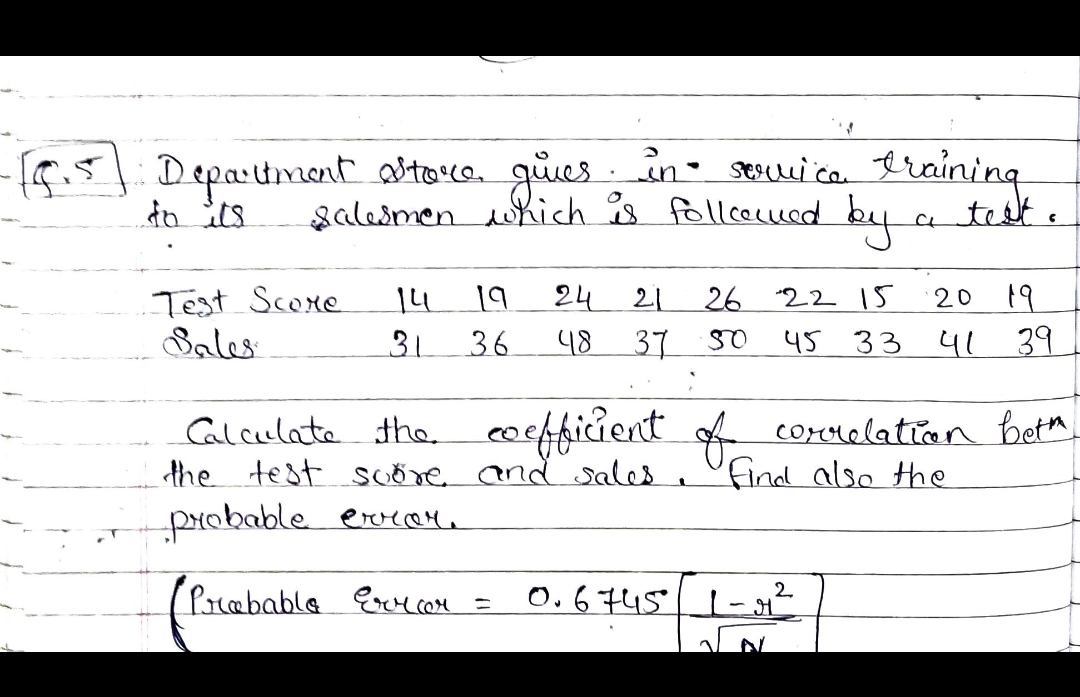 Q.5 Department store gives in-service training
to its salesmen which is followed by a test.
Test Score 14 19 24 21 26 22 15 20 19
Sales 31 36 48 37 50 45 33 41 39
Calculate the coefficient of correlation betn
the test score and sales. Find also the
probable error.
(Probable Error = 0.6745 [1-r²/√N]